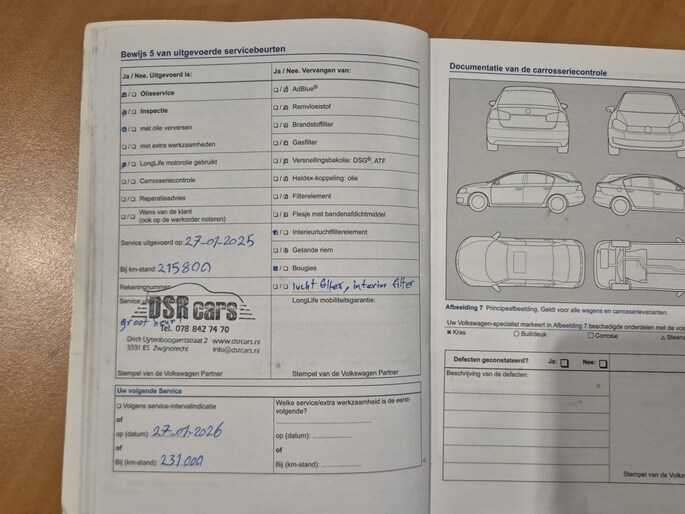 Bewijs 5 van uitgevoerde servicebeurten
Ja / Nee. Uitgevoerd is:
Olieservice
Inspectie
met olie verversen
met extra werkzaamheden
LongLife motorolie gebruikt
Carrosseriecontrole
Reparatieadvies
Wens van de klant
(ook op de werkorder noteren)
Service uitgevoerd op: 27-01-2025
Bij km-stand: 215800
Rekeningnummer
Service
groot beurt
DSR cars
Tel. 078 842 74 70
Dirck Uytenboogaertstraat 2 www.dsrcars.nl
3331 ES Zwijndrecht info@dsrcars.nl
Stempel van de Volkswagen Partner
Ja / Nee. Vervangen van:
AdBlue®
Remvloeistof
Brandstoffilter
Gasfilter
Versnellingsbakolie: DSG®, ATF
Haldex-koppeling: olie
Filterelement
Flesje met bandenafdichtmiddel
Interieurluchtfilterelement
Getande riem
Bougies
lucht filter, interior filter
LongLife mobiliteitsgarantie:
Stempel van de Volkswagen Partner
Uw volgende Service
Volgens service-intervalindicatie
of
op (datum): 27-01-2026
of
Bij (km-stand): 231.000
Welke service/extra werkzaamheid is de eerst-
volgende?
op (datum):
of
Bij (km-stand):
Documentatie van de carrosseriecontrole
Afbeelding 7 Principeafbeelding. Geldt voor alle wagens en carrosserievarianten.
Uw Volkswagen-specialist markeert in Afbeelding 7 beschadigde onderdelen met de
Kras Buil/deuk Corrosie
Defecten geconstateerd? Ja: Nee:
Beschrijving van de defecten:
Stempel van de